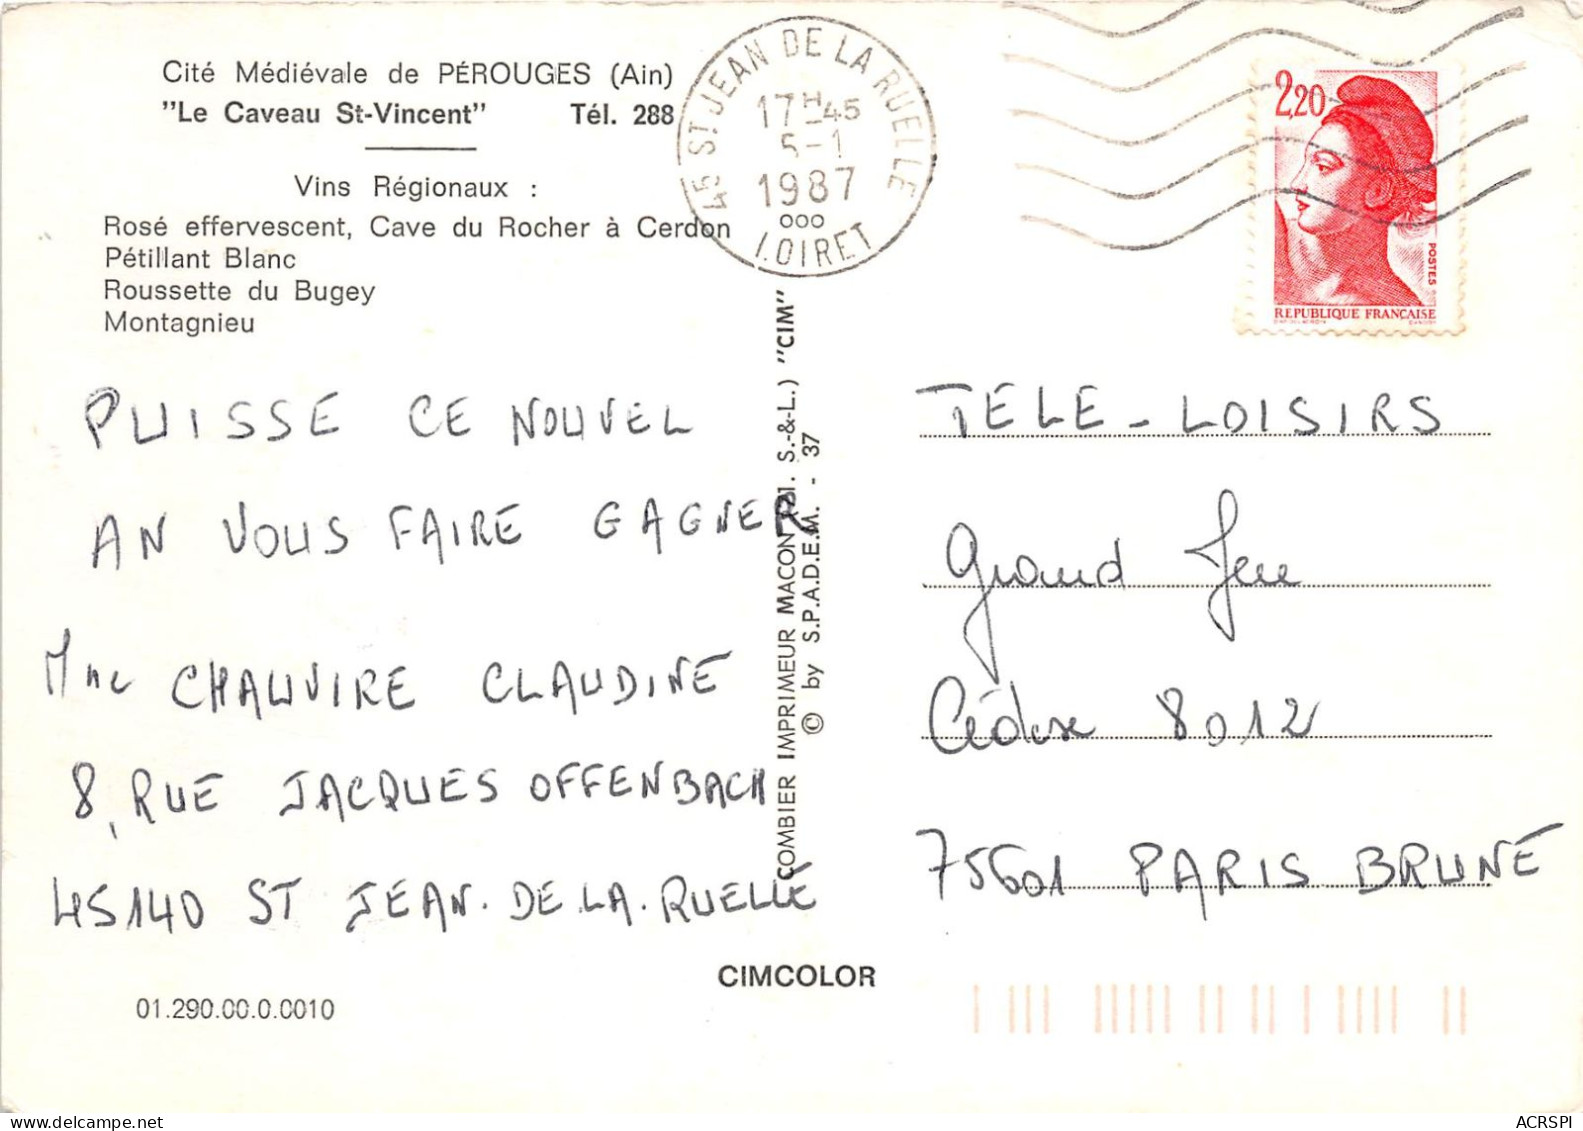 Cité Médiévale de PÉROUGES (Ain)
"Le Caveau St-Vincent" Tél. 288
Vins Régionaux :
Rosé effervescent, Cave du Rocher à Cerdon
Pétillant Blanc
Roussette du Bugey
Montagnieu
45 ST JEAN DE LA RUELLE
17H45
5-1
1987
000
LOIRET
2,20
POSTES
REPUBLIQUE FRANÇAISE
PUISSE CE NOUVEL
AN VOUS FAIRE GAGNER
Mme CHAUVIRE CLAUDINE
8, RUE JACQUES OFFENBACH
45140 ST JEAN. DE.LA.RUELLE
COMBIER IMPRIMEUR MACON S.-&-L.) "CIM"
© by S.P.A.D.E.M. - 37
TELE-LOISIRS
Grand Jeu
Cédex 8012
75601 PARIS BRUNE
CIMCOLOR
01.290.00.0.0010
ACRSPI